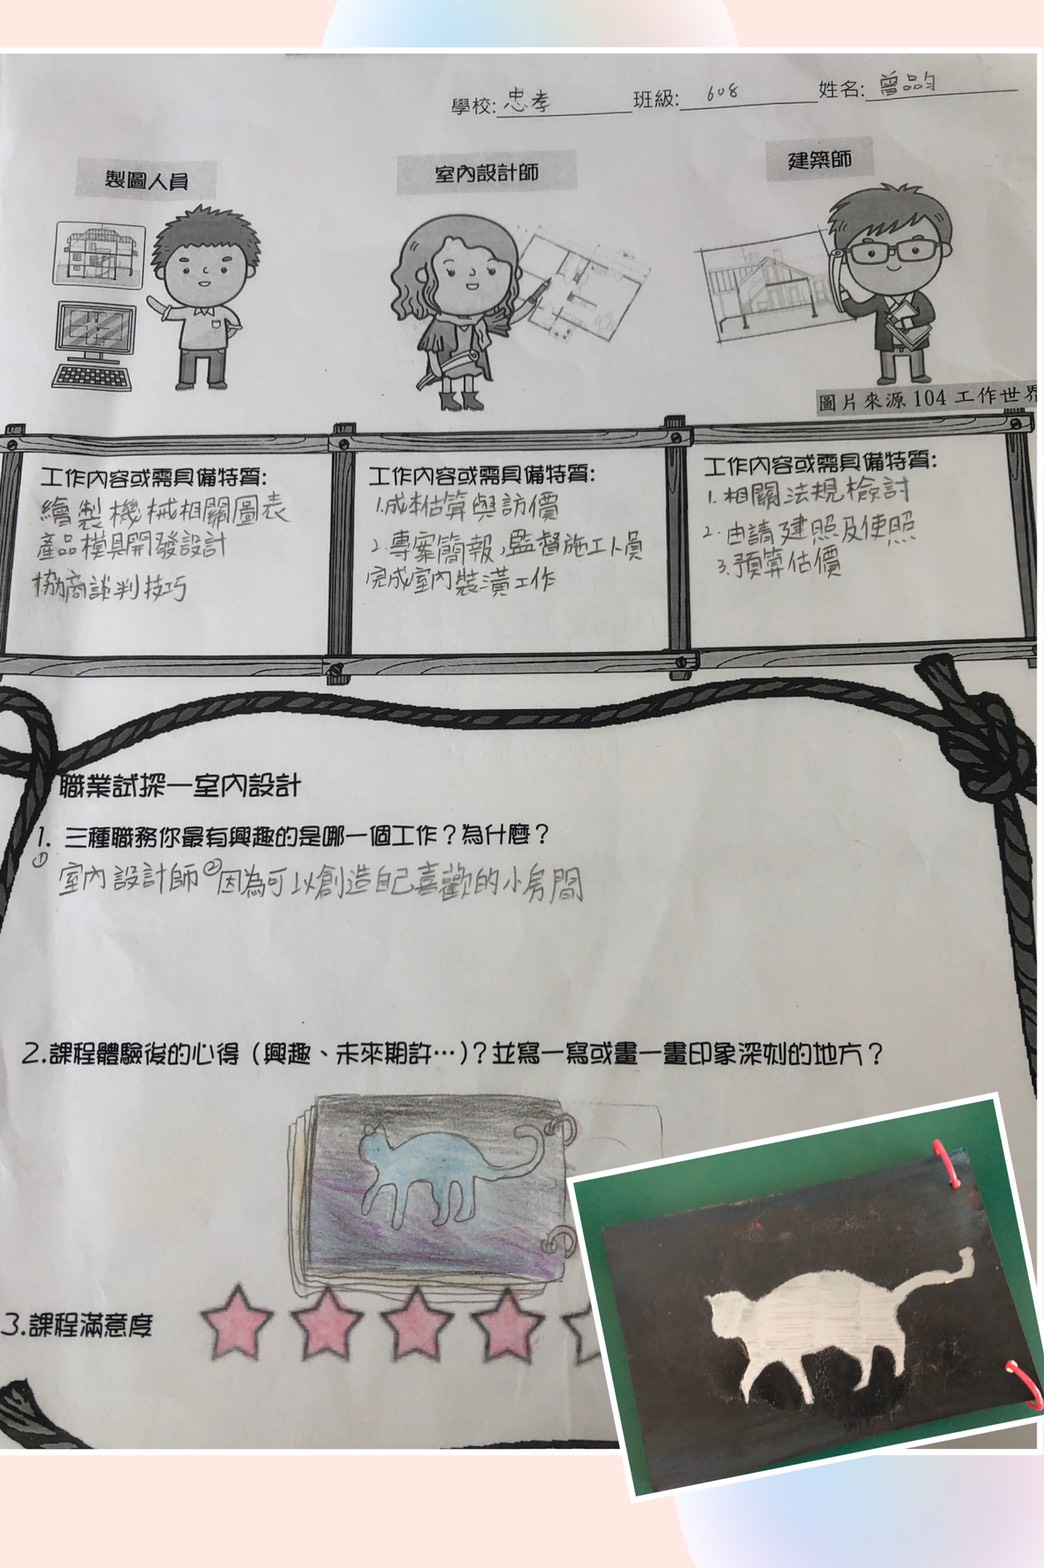 學校: 忠孝 班級: 608 姓名: 曾品昀
製圖人員 室內設計師 建築師
圖片來源 104 工作世界
工作內容或需具備特質:
繪製機械相關圖表
產品模具開發設計
協商談判技巧
工作內容或需具備特質:
1.成本估算與訪價
2.專案簡報、監督施工人員
完成室內裝潢工作
工作內容或需具備特質:
1.相關法規檢討
2.由請建照及使照
3.預算估價
職業試探一室內設計
1. 三種職務你最有興趣的是哪一個工作？為什麼？
① 室內設計師②因為可以創造自己喜歡的小房間
2.課程體驗後的心得（興趣、未來期許…）？並寫一寫或畫一畫印象深刻的地方？
3.課程滿意度